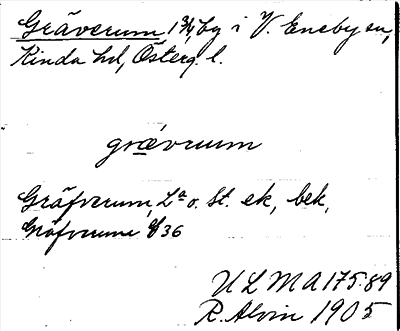 Gräverum, 1 3/4, by i V. Eneby sn,
Kinda hd, Österg. l.
grævrum
Gräfverum, La o. St. ek, bek,
Gräfverume 36
ULMA 175:89
R. Alvin 1905